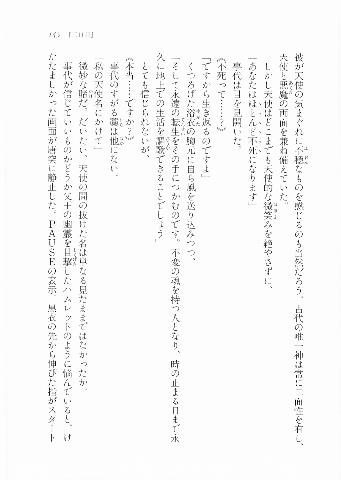 彼が天使の気まぐれに不穏なものを感じるのも当然だろう。古代の唯一神は常に二面性を有し、
天使と悪魔の両面を兼ね備えていた。
しかし天使はどこまでも天使的な微笑みを絶やさずに、
「あなたはほとんど不死になります」
事代は目を見開いた。
《不死って……？》
「ですから生き返るのですよ」
くつろげた浴衣の胸元に自ら風を送り込みつつ、
「そして永遠の転生をその手につかむのです。不変の魂を持つ人となり、時の止まる日まで永
久に地上での生活を謳歌できることでしょう」
とても信じられないが、
《本当……ですか？》
事代のすがる藁は他にない。
「私の天使名にかけて」
微妙な賭だ。だいたい、天使の間の抜けた名は単なる見たままではなかったか。
事代が信じていいものかどうか父王の幽霊を目撃したハムレットのように悩んでいると、け
たたましかった画面が唐突に静止した。PAUSEの表示。黒衣の先から伸びた指がスタート